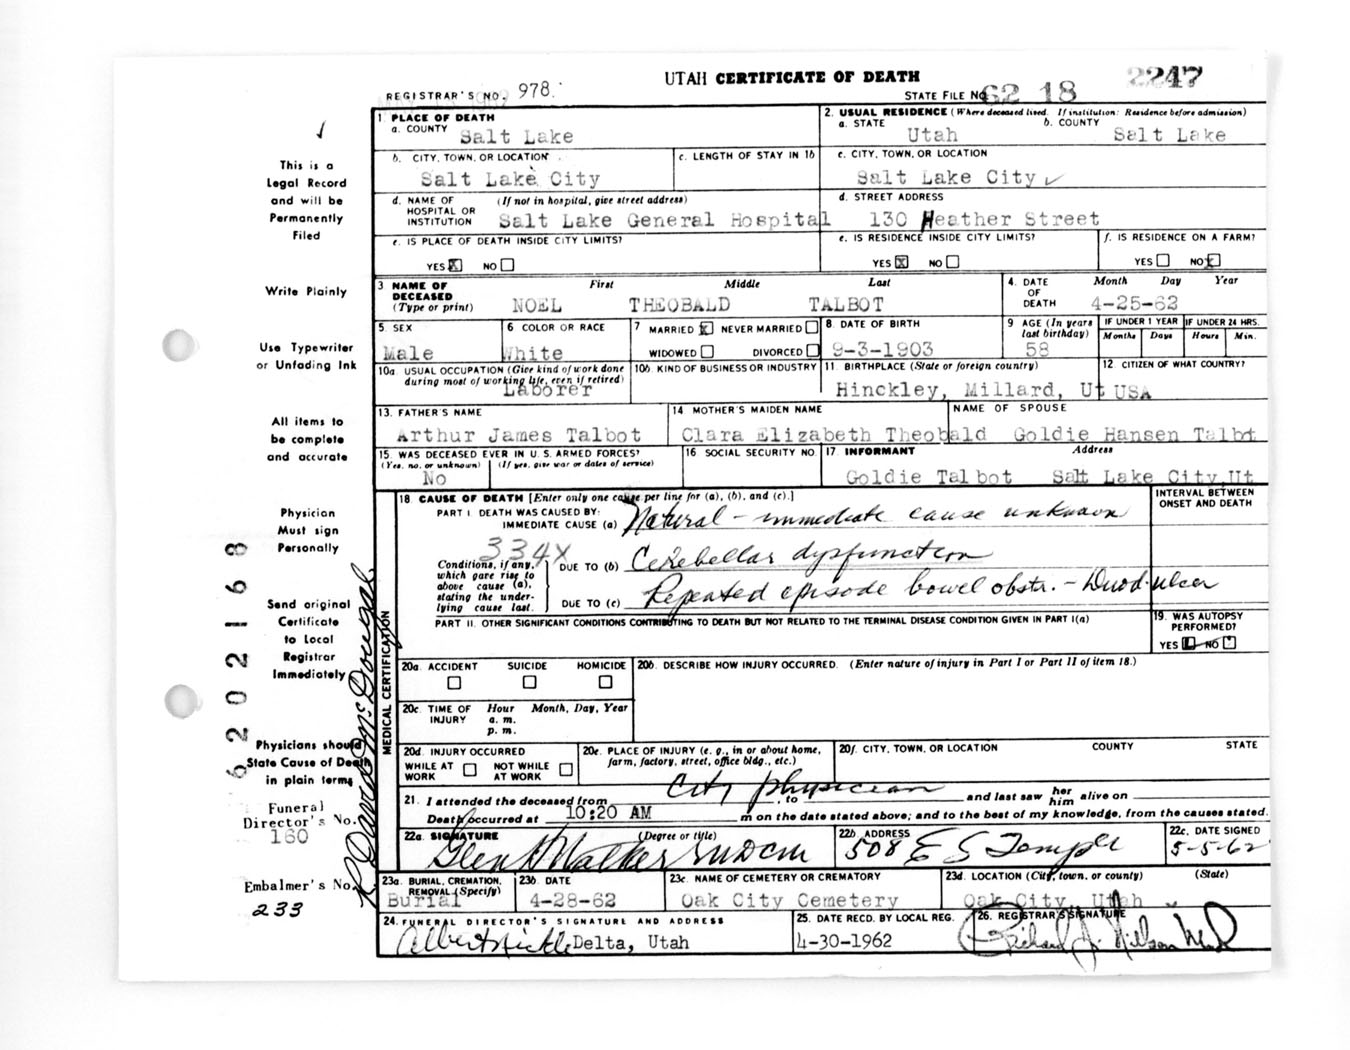 UTAH CERTIFICATE OF DEATH
2247
REGISTRAR'S NO. 978.
STATE FILE NO. 62 18
1. PLACE OF DEATH
a. COUNTY Salt Lake
2. USUAL RESIDENCE (Where deceased lived. If institution: Residence before admission)
a. STATE Utah b. COUNTY Salt Lake
b. CITY, TOWN, OR LOCATION Salt Lake City
c. LENGTH OF STAY IN 1b
c. CITY, TOWN, OR LOCATION Salt Lake City
d. NAME OF HOSPITAL OR INSTITUTION (If not in hospital, give street address) Salt Lake General Hospital
d. STREET ADDRESS 130 Heather Street
e. IS PLACE OF DEATH INSIDE CITY LIMITS?
YES X NO
e. IS RESIDENCE INSIDE CITY LIMITS?
YES X NO
f. IS RESIDENCE ON A FARM?
YES NO X
3. NAME OF DECEASED (Type or print)
First Middle Last
NOEL THEOBALD TALBOT
4. DATE OF DEATH Month Day Year
4-25-62
5. SEX Male
6. COLOR OR RACE White
7. MARRIED X NEVER MARRIED
WIDOWED DIVORCED
8. DATE OF BIRTH 9-3-1903
9. AGE (In years last birthday) 58
IF UNDER 1 YEAR Months Days
IF UNDER 24 HRS. Hours Min.
10a. USUAL OCCUPATION (Give kind of work done during most of working life, even if retired) Laborer
10b. KIND OF BUSINESS OR INDUSTRY
11. BIRTHPLACE (State or foreign country) Hinckley, Millard, Ut
12. CITIZEN OF WHAT COUNTRY? USA
13. FATHER'S NAME Arthur James Talbot
14. MOTHER'S MAIDEN NAME Clara Elizabeth Theobald
NAME OF SPOUSE Goldie Hansen Talbt
15. WAS DECEASED EVER IN U. S. ARMED FORCES?
(Yes, no, or unknown) (If yes, give war or dates of service)
No
16. SOCIAL SECURITY NO.
17. INFORMANT Address
Goldie Talbot Salt Lake City, Ut
18. CAUSE OF DEATH [Enter only one cause per line for (a), (b), and (c).]
INTERVAL BETWEEN ONSET AND DEATH
PART I. DEATH WAS CAUSED BY:
IMMEDIATE CAUSE (a) Natural - immediate cause unknown
334X
Conditions, if any, which gave rise to above cause (a), stating the underlying cause last.
DUE TO (b) Cerebellar dysfunction
DUE TO (c) Repeated episode bowel obstr. - Duod. ulcer
PART II. OTHER SIGNIFICANT CONDITIONS CONTRIBUTING TO DEATH BUT NOT RELATED TO THE TERMINAL DISEASE CONDITION GIVEN IN PART I(a)
19. WAS AUTOPSY PERFORMED?
YES NO
20a. ACCIDENT SUICIDE HOMICIDE
20b. DESCRIBE HOW INJURY OCCURRED. (Enter nature of injury in Part I or Part II of item 18.)
20c. TIME OF INJURY Hour Month, Day, Year
a. m.
p. m.
20d. INJURY OCCURRED
WHILE AT WORK NOT WHILE AT WORK
20e. PLACE OF INJURY (e. g., in or about home, farm, factory, street, office bldg., etc.)
20f. CITY, TOWN, OR LOCATION COUNTY STATE
City physician
21. I attended the deceased from , to and last saw her him alive on
Death occurred at 10:20 AM m on the date stated above; and to the best of my knowledge, from the causes stated.
22a. SIGNATURE (Degree or title)
22b. ADDRESS 508 E S Temple
22c. DATE SIGNED 5-5-62
23a. BURIAL, CREMATION, REMOVAL (Specify) Burial
23b. DATE 4-28-62
23c. NAME OF CEMETERY OR CREMATORY Oak City Cemetery
23d. LOCATION (City, town, or county) (State)
Oak City, Utah
24. FUNERAL DIRECTOR'S SIGNATURE AND ADDRESS
Delta, Utah
25. DATE RECD. BY LOCAL REG. 4-30-1962
26. REGISTRAR'S SIGNATURE
Richard J. Nilson
MEDICAL CERTIFICATION
This is a
Legal Record
and will be
Permanently
Filed
Write Plainly
Use Typewriter
or Unfading Ink
All items to
be complete
and accurate
Physician
Must sign
Personally
Send original
Certificate
to Local
Registrar
Immediately
Physicians should
State Cause of Death
in plain terms
Funeral
Director's No.
160
Embalmer's No.
233
62 02168
R. David McDougal